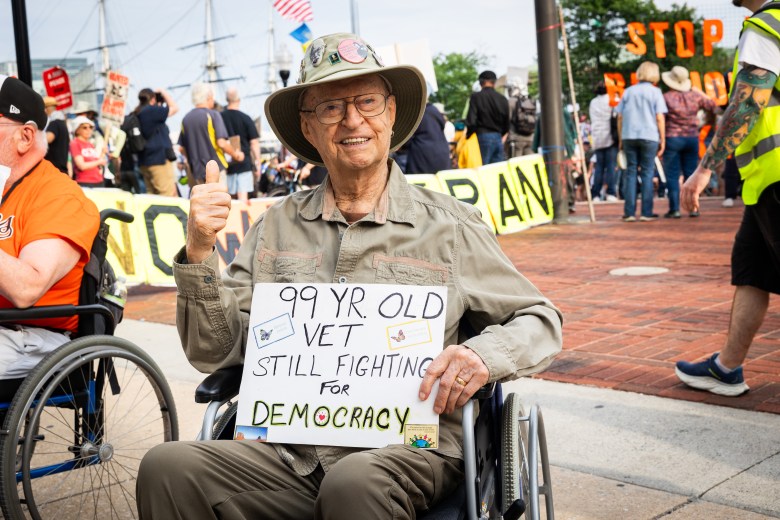 STOP
NO
RAN
99 YR. OLD
VET
STILL FIGHTING
FOR
DEMOCRACY